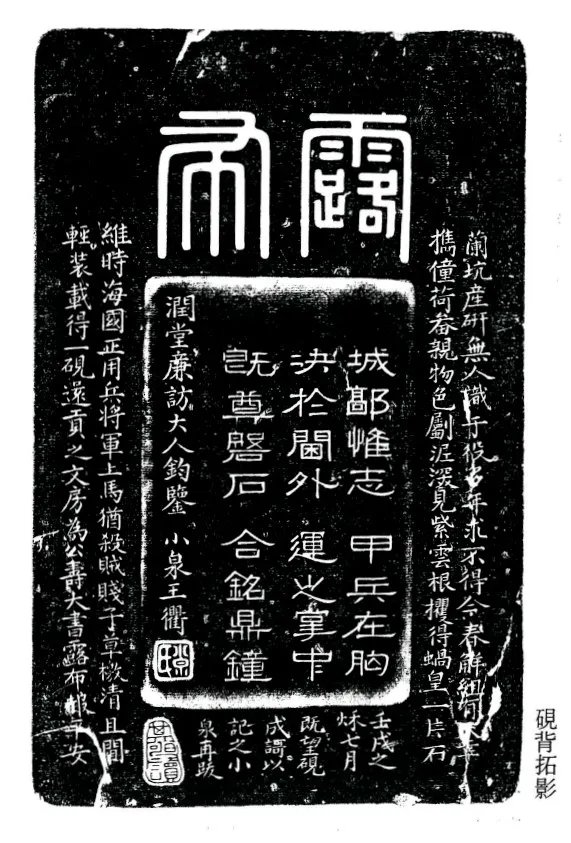 露布
蘭坑產研無人識予役多年求不得今春解組
擕僮荷畚親物色劚泥深見紫雲根攫得蝸皇一片石
城鄙惟志 甲兵在胸
決於閫外 運之掌中
既尊磐石 合銘鼎鐘
潤堂廉訪大人鈞鑒 小泉王衢
維時海國正用兵將軍上馬猶殺賊賤子草檄清且閒
輕裝載得一硯還貢之文房為公壽大書露布報平安
壬戌之
秌七月
既望硯
成謌以
記之小
泉再跋
硯背拓影